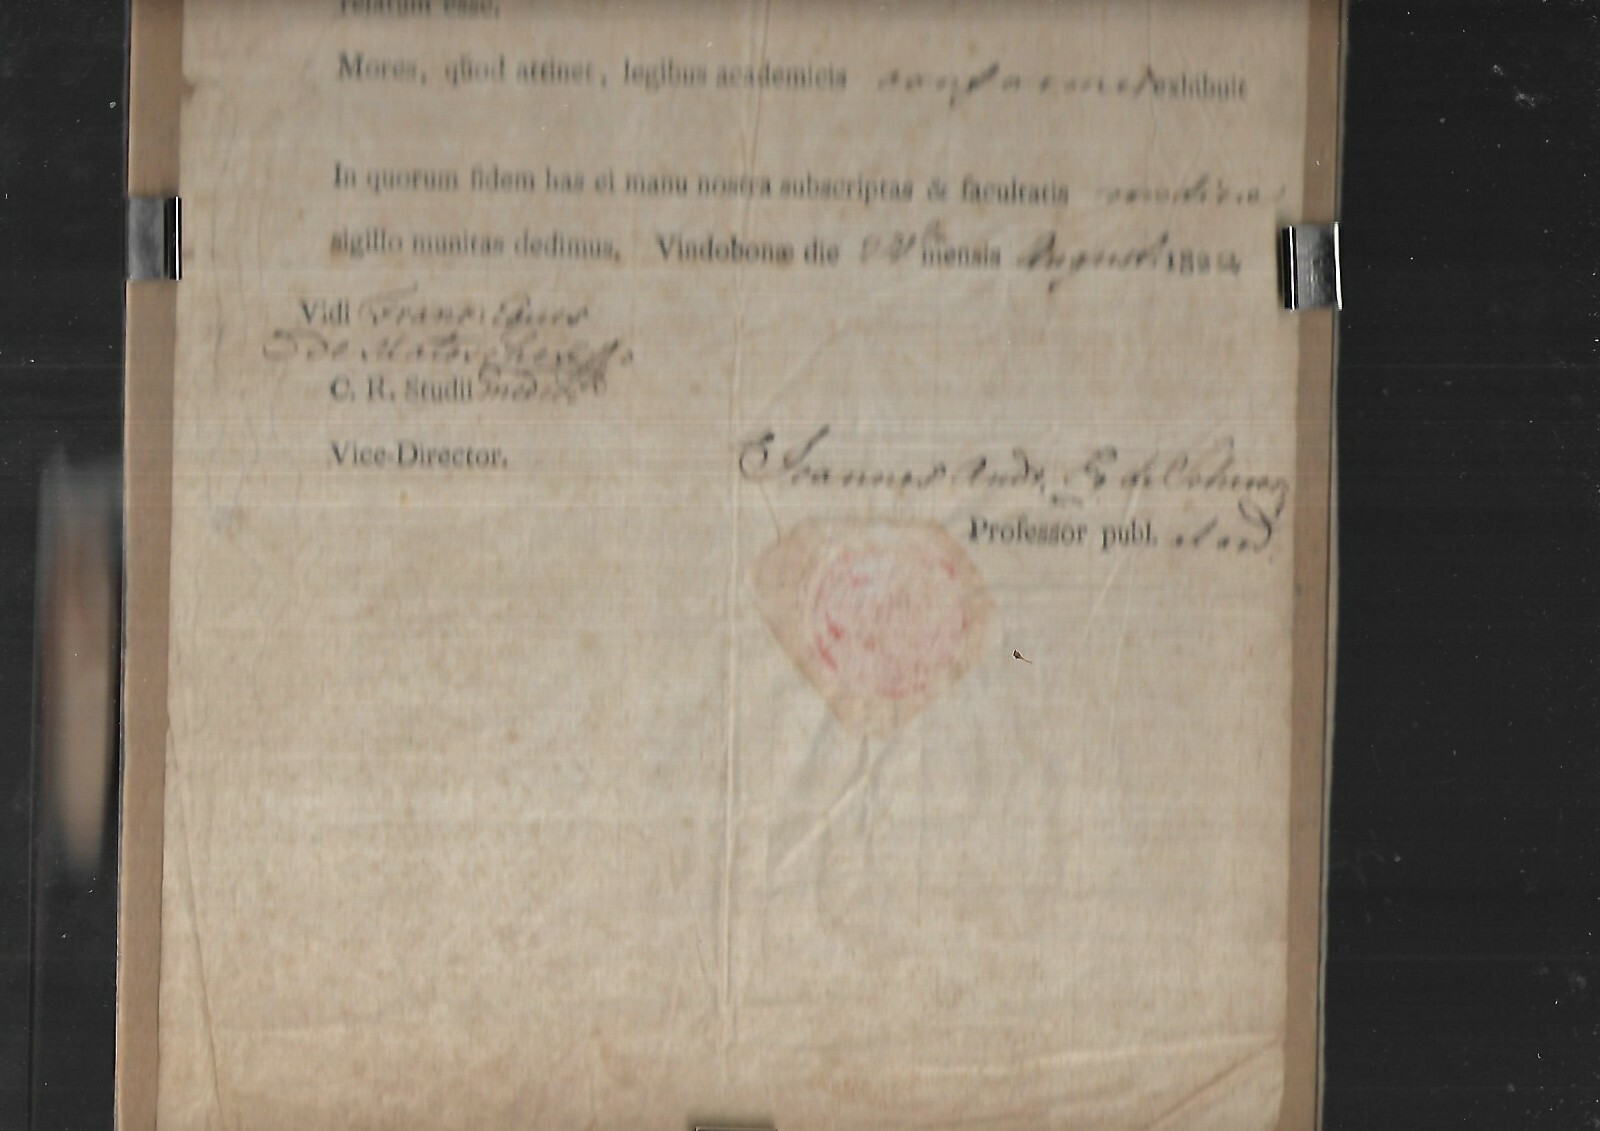 relatum esse.
Mores, quod attinet, legibus academicis conformes exhibuit
In quorum fidem has ei manu nostra subscriptas & facultatis medicae
sigillo munitas dedimus, Vindobonæ die mensis Augusti 182
Vidi Franc. Eques
de
C. R. Studii medici
Vice-Director.
Joannes Andr.
Professor publ. et ord.